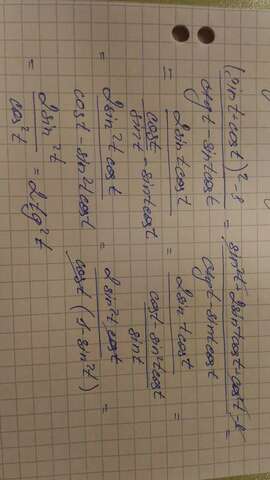 (sin t + cos t)² - 1 / ctg t - sin t cos t = sin² t + 2 sin t cos t + cos² t - 1 / ctg t - sin t cos t =
= 2 sin t cos t / cos t / sin t - sin t cos t = 2 sin t cos t / cos t - sin² t cos t / sin t =
= 2 sin² t cos t / cos t - sin² t cos t = 2 sin² t cos t / cos t (1 - sin² t) =
= 2 sin² t / cos² t = 2 tg² t